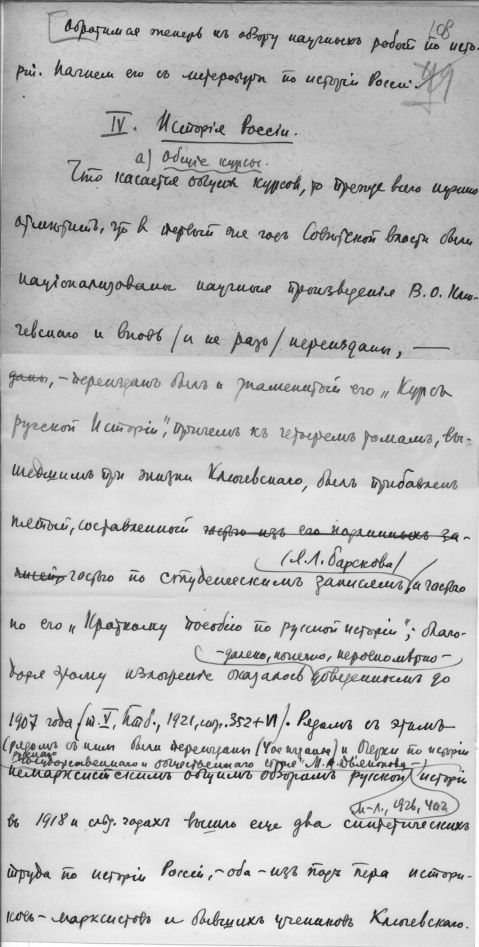 108
Обратимся теперь къ обзору научныхъ работъ по исто-
ріи. Начнем его съ литературы по исторіи Россіи.
IV. Исторія Россіи.
а) Общіе курсы.
Что касается общихъ курсов, то прежде всего нужно
отмѣтить, что в первый же годъ Совѣтской власти были
націонализованы научныя произведенія В.О. Клю-
чевскаго и вновь /и не разъ/ переизданы, —
даны, – переизданъ былъ и знаменитый его „Курсъ
русской Исторіи", причемъ къ четыремъ томамъ, вы-
шедшимъ при жизни Ключевскаго, былъ прибавленъ
пятый, составленный частью изъ его подлинныхъ за-
писей, частью по студенческимъ записямъ /Я.Л. Барскова/ и частью
по его „Краткому пособію по русской исторіи"; благо-
даря этому изложеніе оказалось – далеко, конечно, неравномѣрно – доведеннымъ до
1907 года /т. V, Птб., 1921, стр. 352+VI/. Рядомъ съ этимъ
(рядомъ съ ними были переизданы и „Очерки по исторіи
государственного и общественного строя" М.А. Дьяконова –)
немарксистскимъ общимъ обзорамъ русской исторіи
М-Л., 1926,
въ 1918 и слѣд. годахъ вышло еще два синтетическихъ
труда по исторіи Россіи, – оба – изъ подъ пера истори-
ковъ-марксистовъ и бывшихъ учениковъ Ключевскаго.